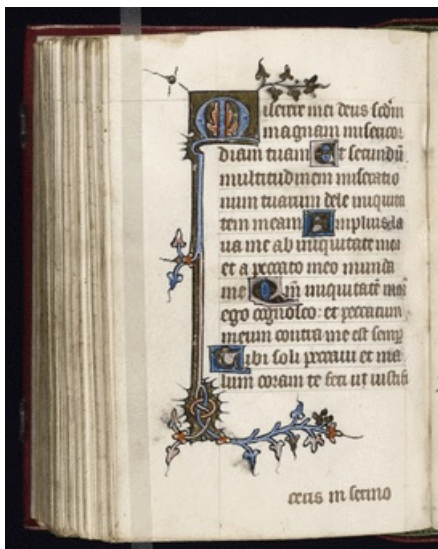 Miserere mei deus scdm
magnam misericor
diam tuam Et secundu
multitudinem miseratio
num tuarum dele iniquita
tem meam Amplius la
ua me ab iniquitate mea
et a peccato meo munda
me Qm iniquitate mea
ego cognosco: et peccatum
meum contra me est semp
Tibi soli peccaui et ma
lum coram te feci ut iustifi
ceris in sermo